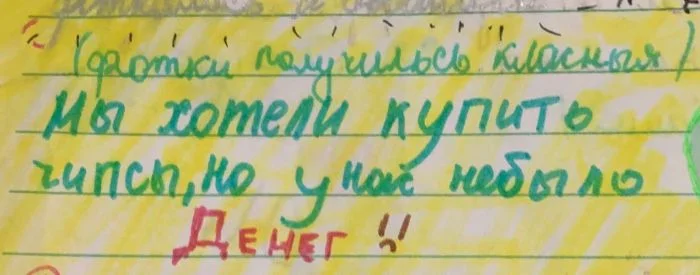 (фотки получильсь класныя)
мы хотели купить
чипсы, но у нас небыло
ДЕНЕГ !!